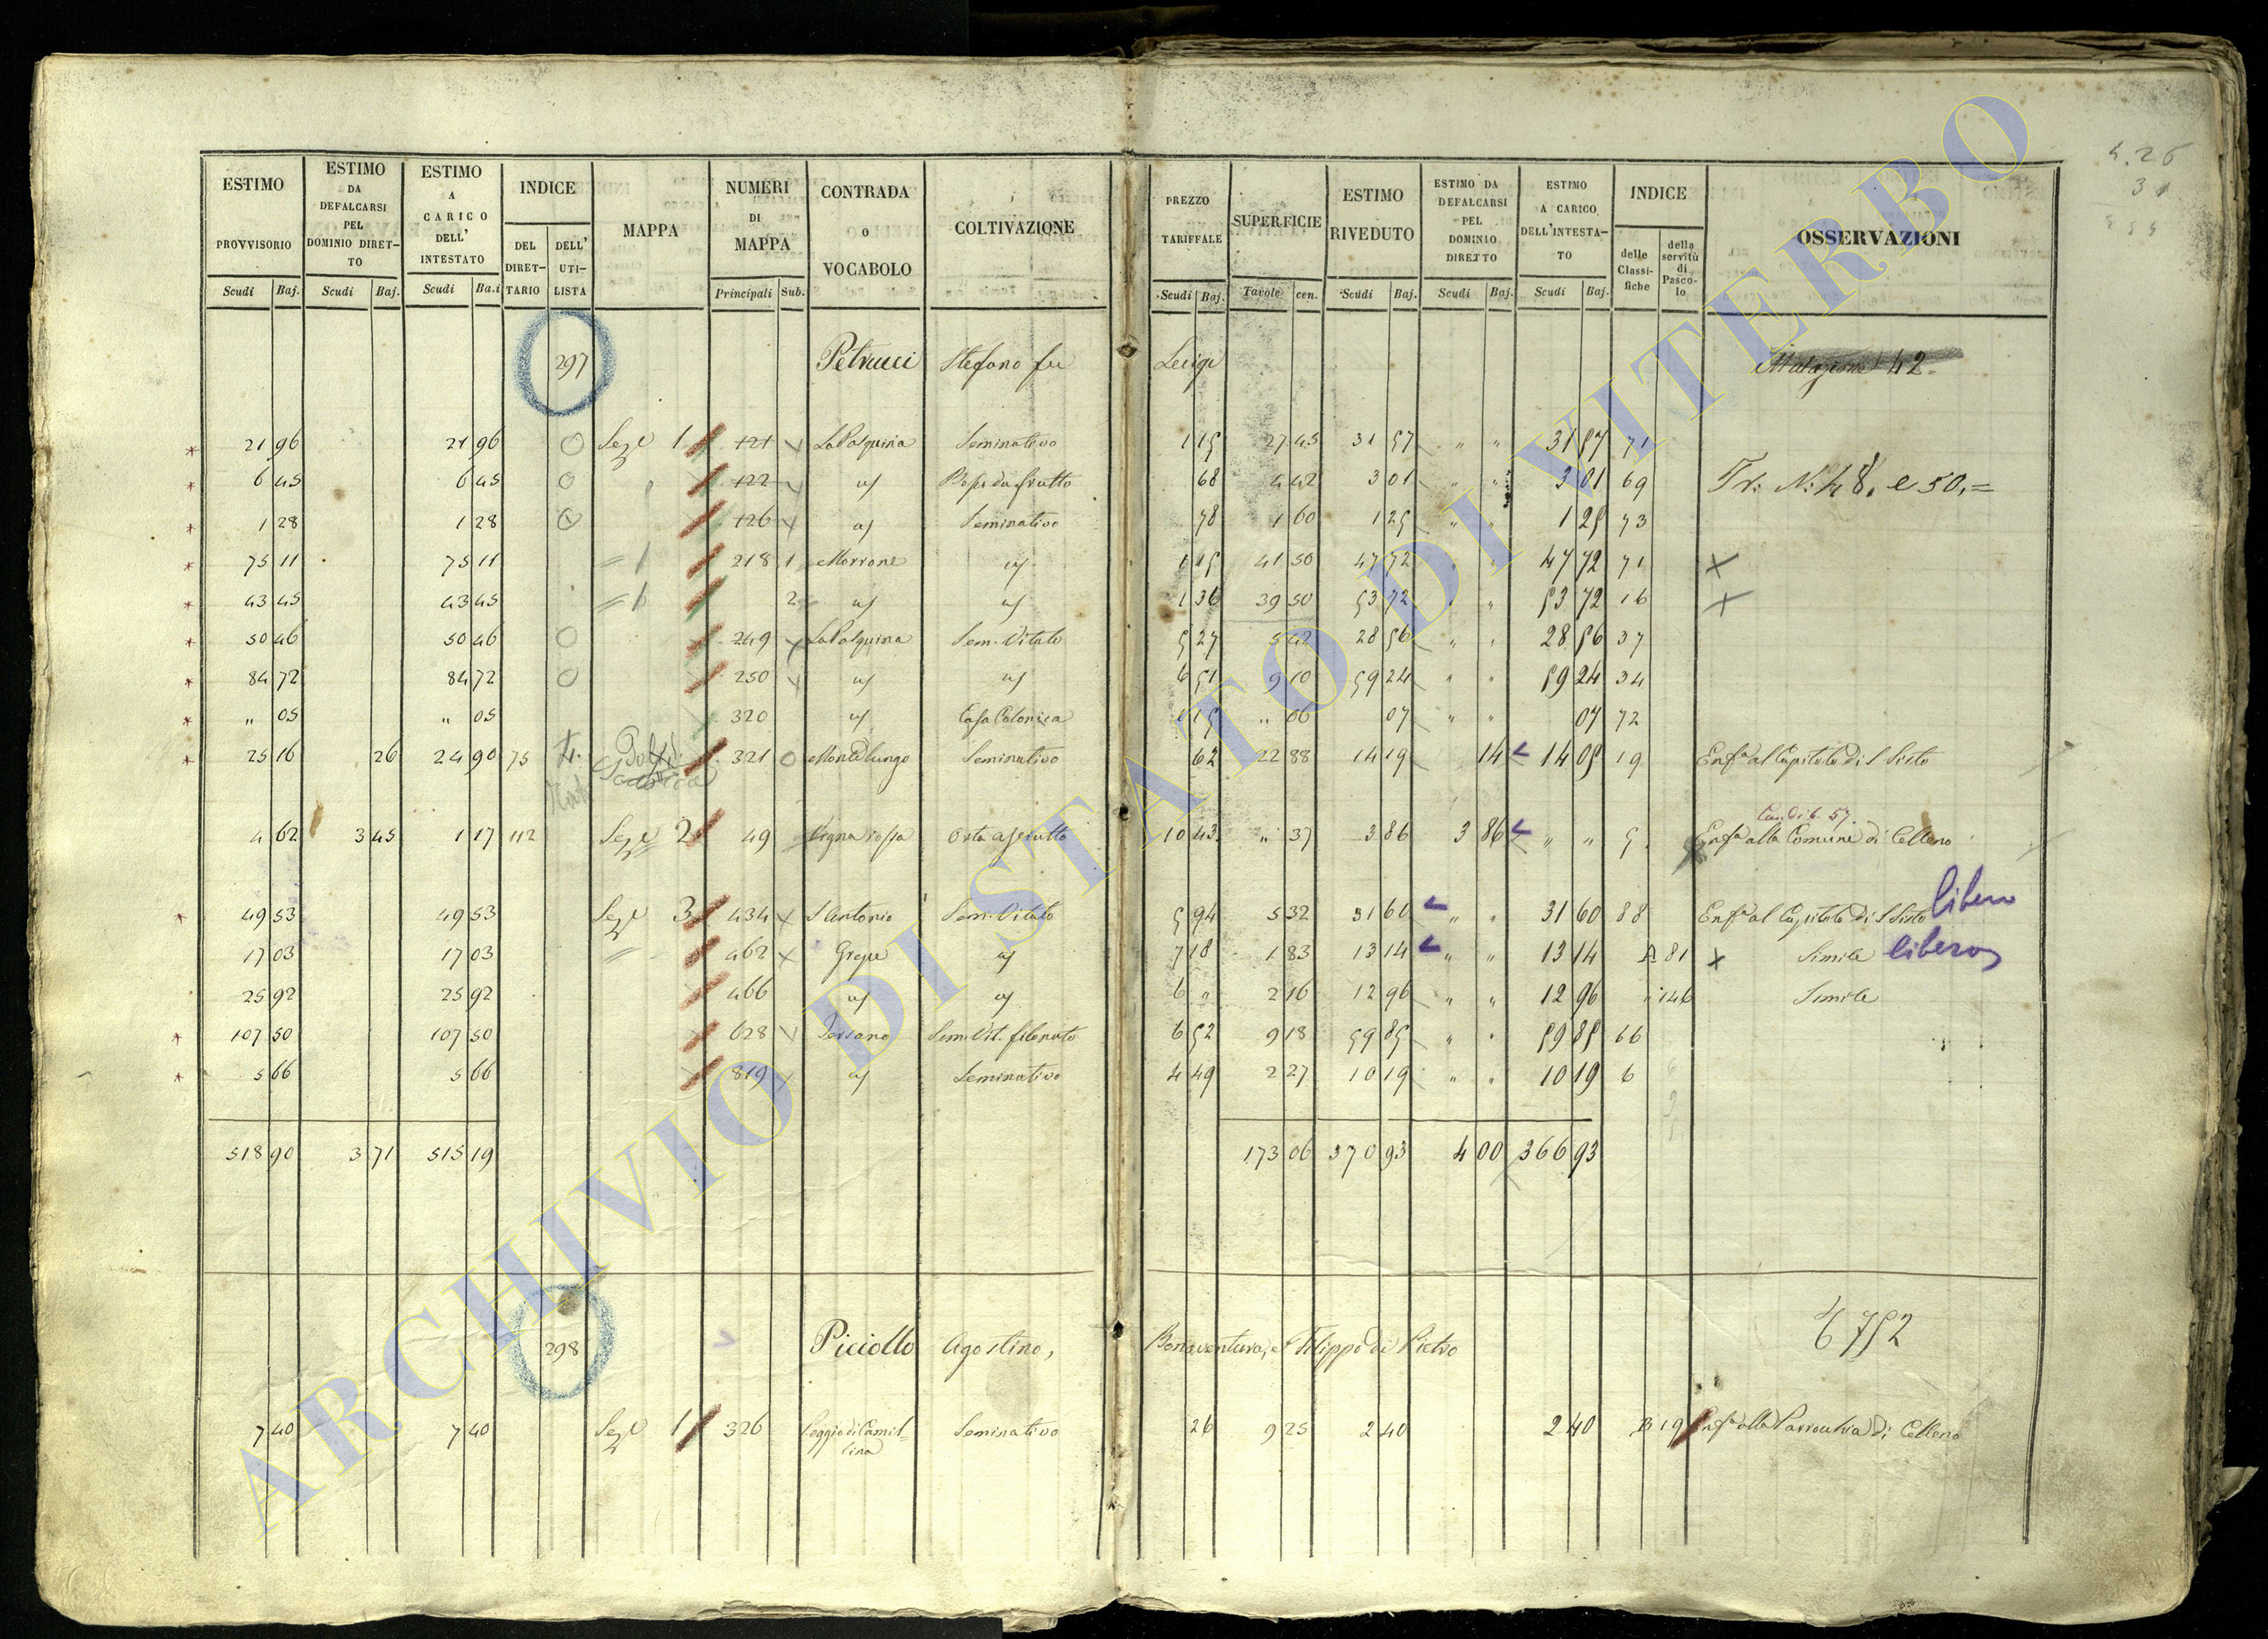 4.26
3 1
ESTIMO PROVVISORIO Scudi Baj. ESTIMO DA DEFALCARSI PEL DOMINIO DIRET-TO Scudi Baj. ESTIMO A CARICO DELL' INTESTATO Scudi Ba.i INDICE DEL DIRET-TARIO DELL' UTI-LISTA MAPPA NUMERI DI MAPPA Principali Sub. CONTRADA O VOCABOLO COLTIVAZIONE PREZZO TARIFFALE Scudi Baj. SUPERFICIE Tavole cen. ESTIMO RIVEDUTO Scudi Baj. ESTIMO DA DEFALCARSI PEL DOMINIO DIRETTO Scudi Baj. ESTIMO A CARICO DELL'INTESTA-TO Scudi Baj. INDICE delle Classi-fiche della servitù di Pasco-lo OSSERVAZIONI
297 Petrucci Stefano fu Luigi 42
21 96 21 96 Seze 1 121 La Pasquina Seminativo 1 15 27 45 31 57 " " 31 57 71
6 45 6 45 122 Bosc. da frutto 68 4 42 3 01 " " 3 01 69 Tr: N: 48. e 50.=
1 28 1 28 126 Seminativo 78 1 60 1 25 " " 1 25 73
75 11 75 11 = 1 218 1 Morrone 1 15 41 50 47 72 " " 47 72 71 x
43 45 43 45 = 1 2 1 36 39 50 53 72 " " 53 72 16 x
50 46 50 46 249 La Pasquina Sem. Vitato 5 27 5 42 28 56 " " 28 56 37
84 72 84 72 250 6 51 9 10 59 24 " " 59 24 34
" 05 " 05 320 Casa Colonica 1 15 " 06 07 " " 07 72
25 16 26 24 90 75 321 Monte lungo Seminativo 62 22 88 14 19 14 14 05 19 Enfa al Capitolo di S Sisto
4 62 3 45 1 17 112 Seze 2 49 Vigna rossa Orto asciutto 10 43 " 37 3 86 3 86 " " 5 Enfa alla Comune di Celleno
49 53 49 53 Seze 3 434 x S Antonio Sem. Vitato 5 94 5 32 31 60 " " 31 60 88 Enfa al Capitolo di S Sisto libero
17 03 17 03 = 462 x Grepe 7 18 1 83 13 14 " " 13 14 A 81 x Simile libero
25 92 25 92 466 6 " 2 16 12 96 " " 12 96 " 146 Simile
107 50 107 50 628 Sem. Vit. filonato 6 52 9 18 59 85 " " 59 85 66
5 66 5 66 819 Seminativo 4 49 2 27 10 19 " " 10 19 6
518 90 3 71 515 19 173 06 370 93 4 00 366 93
6752
298 Piciollo Agostino, Bonaventura, e Filippo di Pietro
7 40 7 40 Seze 1 326 Poggio di Camil-lina Seminativo 26 9 25 2 40 2 40 B 19 Enfa alla Parrocchia di Celleno
ARCHIVIO DI STATO DI VITERBO